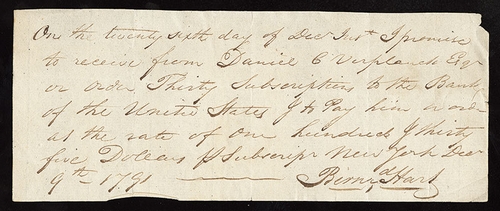 On the twenty sixth day of Decr Inst I promise
to receive from Daniel C Verplanck Esqr
or order Thirty Subscriptions to the Bank
of the United States & to Pay him or order
at the rate of one hundred & thirty
five Dollars p Subscripn New York Decr
9th 1791 Bernrd Hart